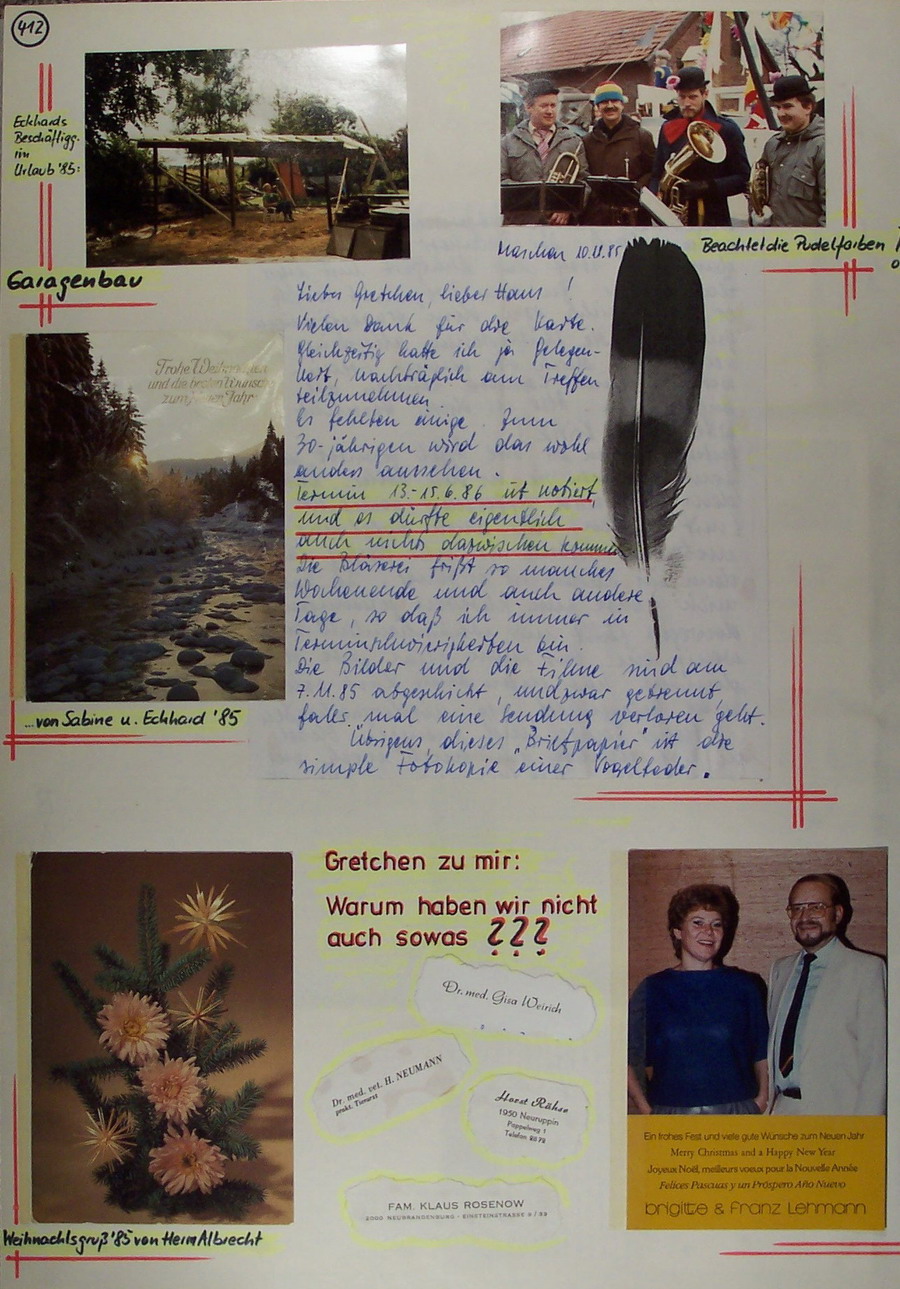 412
Eckhards
Beschäftigg.
im
Urlaub '85:
Garagenbau
Beachtet die Pudelfarben
10.11.85
Liebes Gretchen, lieber Hans!
Vielen Dank für die Karte.
Gleichzeitig hatte ich ja Gelegen-
heit, nachträglich am Treffen
teilzunehmen.
Es fehlten einige. Zum
30-jährigen wird das wohl
anders aussehen.
Termin 13.-15.6.86 ist notiert,
und es dürfte eigentlich
auch nichts dazwischen kommen
Die Bläserei frißt so manches
Wochenende und auch andere
Tage, so daß ich immer in
Terminschwierigkeiten bin.
Die Bilder und die Filme sind am
7.11.85 abgeschickt, und zwar getrennt,
falls mal eine Sendung verloren geht.
Übrigens, dieses „Briefpapier" ist die
simple Fotokopie einer Vogelfeder.
Frohe Weihnachten
und die besten Wünsche
zum Neuen Jahr
...von Sabine u. Eckhard '85
Gretchen zu mir:
Warum haben wir nicht
auch sowas ???
Dr. med. Gisa Weirich
Dr. med. vet. H. NEUMANN
prakt. Tierarzt
Horst Rühse
1950 Neuruppin
Pappelweg 1
Telefon 8678
FAM. KLAUS ROSENOW
2000 NEUBRANDENBURG - EINSTEINSTRASSE 9 / 39
Weihnachtsgruß '85 von Herrn Albrecht
Ein frohes Fest und viele gute Wünsche zum Neuen Jahr
Merry Christmas and a Happy New Year
Joyeux Noël, meilleurs voeux pour la Nouvelle Année
Felices Pascuas y un Próspero Año Nuevo
brigitte & franz Lehmann